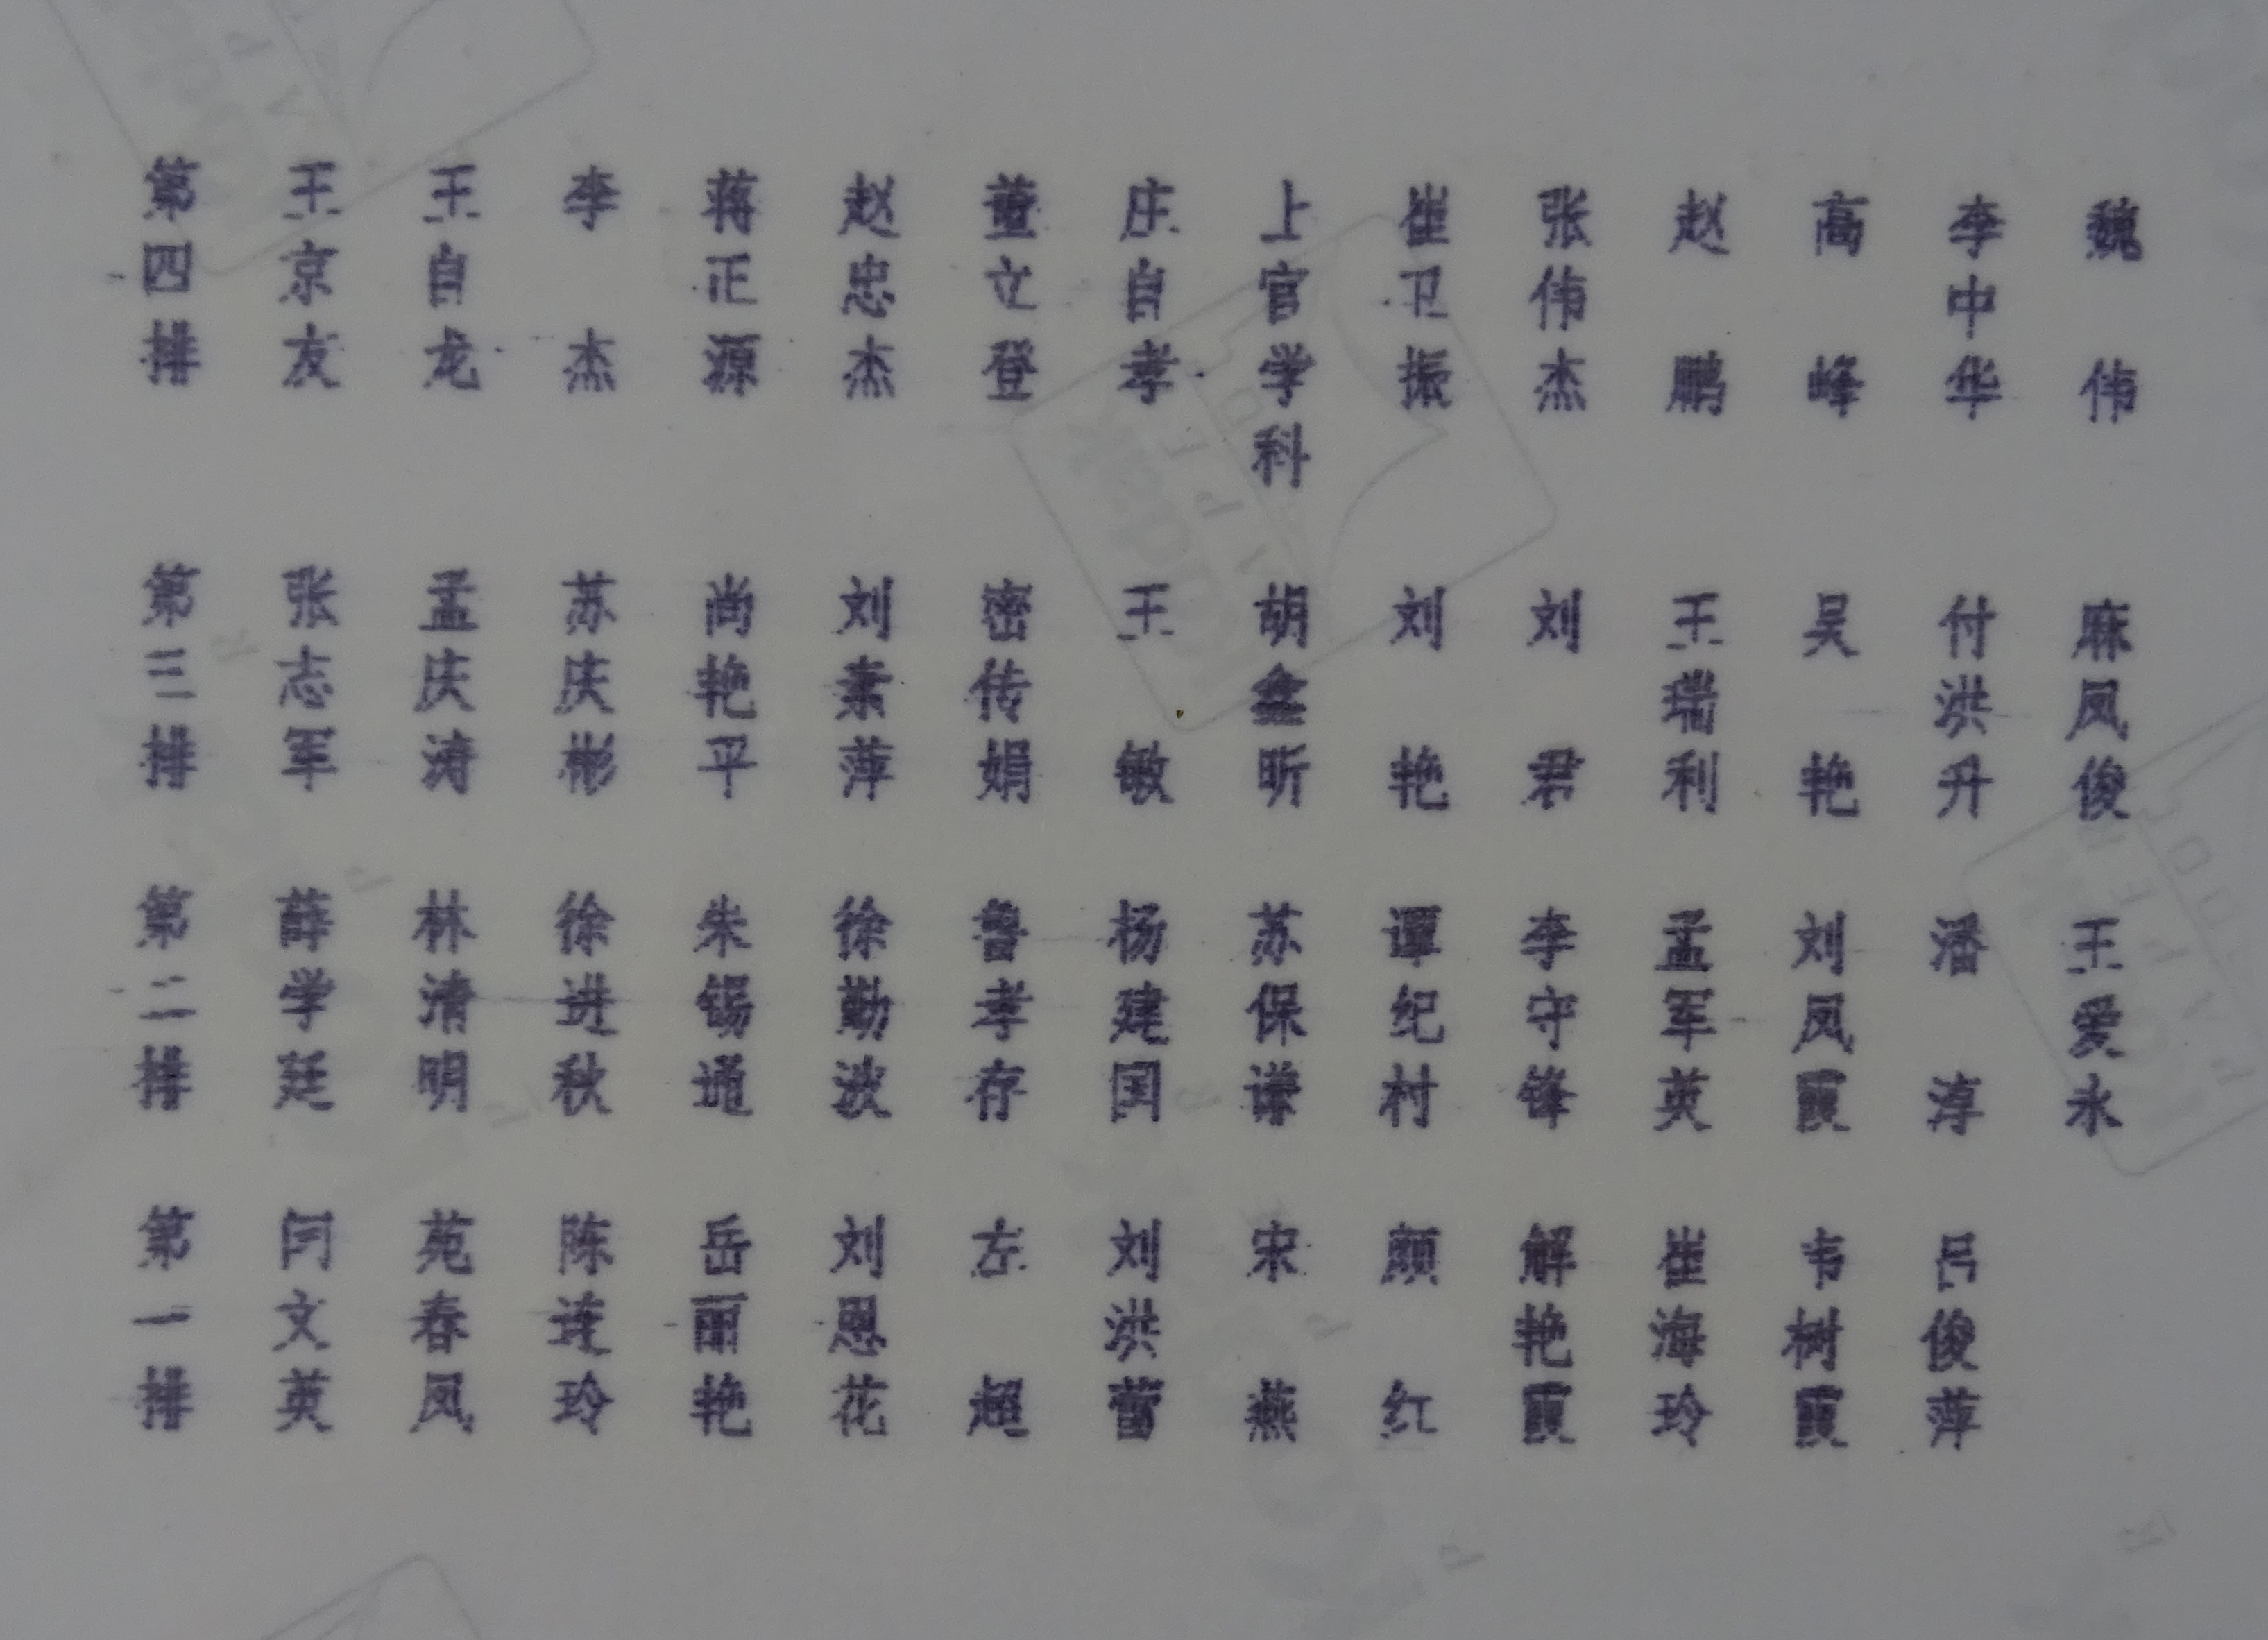 第四排 王京友 王自龙 李杰 蒋正源 赵忠杰 董立登 庄自孝 上官学科 崔卫振 张伟杰 赵鹏 高峰 李中华 魏伟
第三排 张志军 孟庆涛 苏庆彬 尚艳平 刘素萍 密传娟 王敏 胡鑫昕 刘艳 刘君 王瑞利 吴艳 付洪升 麻凤俊
第二排 薛学廷 林清明 徐进秋 朱锡通 徐勤波 鲁孝存 杨建国 苏保谦 谭纪村 李守锋 孟军英 刘凤霞 潘淳 王爱永
第一排 闫文英 苑春凤 陈连玲 岳丽艳 刘恩花 左超 刘洪蕾 宋燕 颜红 解艳霞 崔海玲 韦树霞 吕俊萍